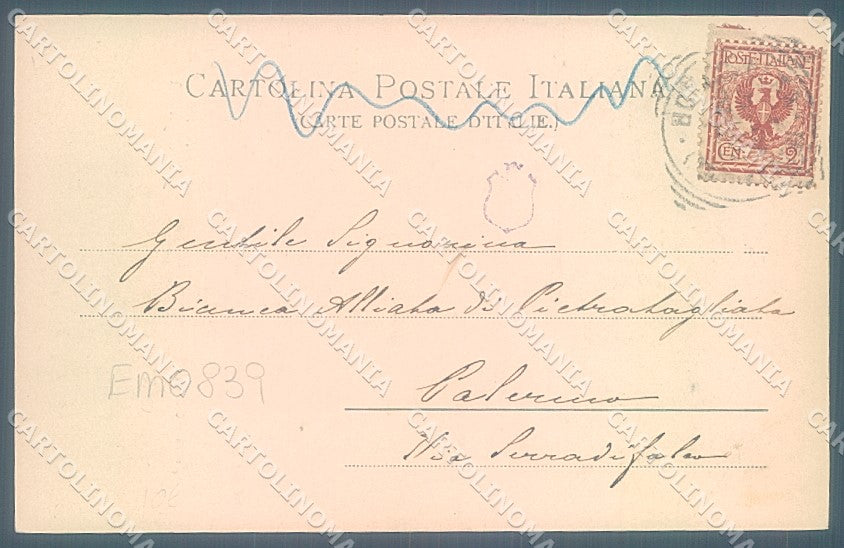 CARTOLINA POSTALE ITALIANA
(CARTE POSTALE D'ITALIE.)
POSTE ITALIANE
CEN. 2
Gentile Signorina
Bianca Alliata di Pietratagliata
Palermo
Via Serradifalco
EM0839
CARTOLINOMANIA